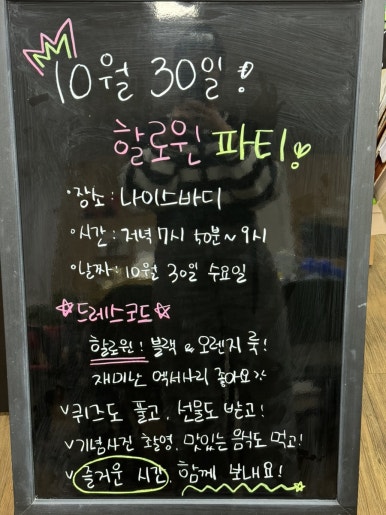 10월 30일!
할로윈 파티!
·장소 : 나이스바디
·시간 : 저녁 7시 50분~9시
·날짜: 10월 30일 수요일
☆드레스코드☆
할로윈! 블랙 & 오렌지 룩!
재미난 악세사리 좋아요
∨퀴즈도 풀고, 선물도 받고!
∨기념사진 촬영, 맛있는 음식도 먹고!
∨즐거운 시간, 함께 보내요!